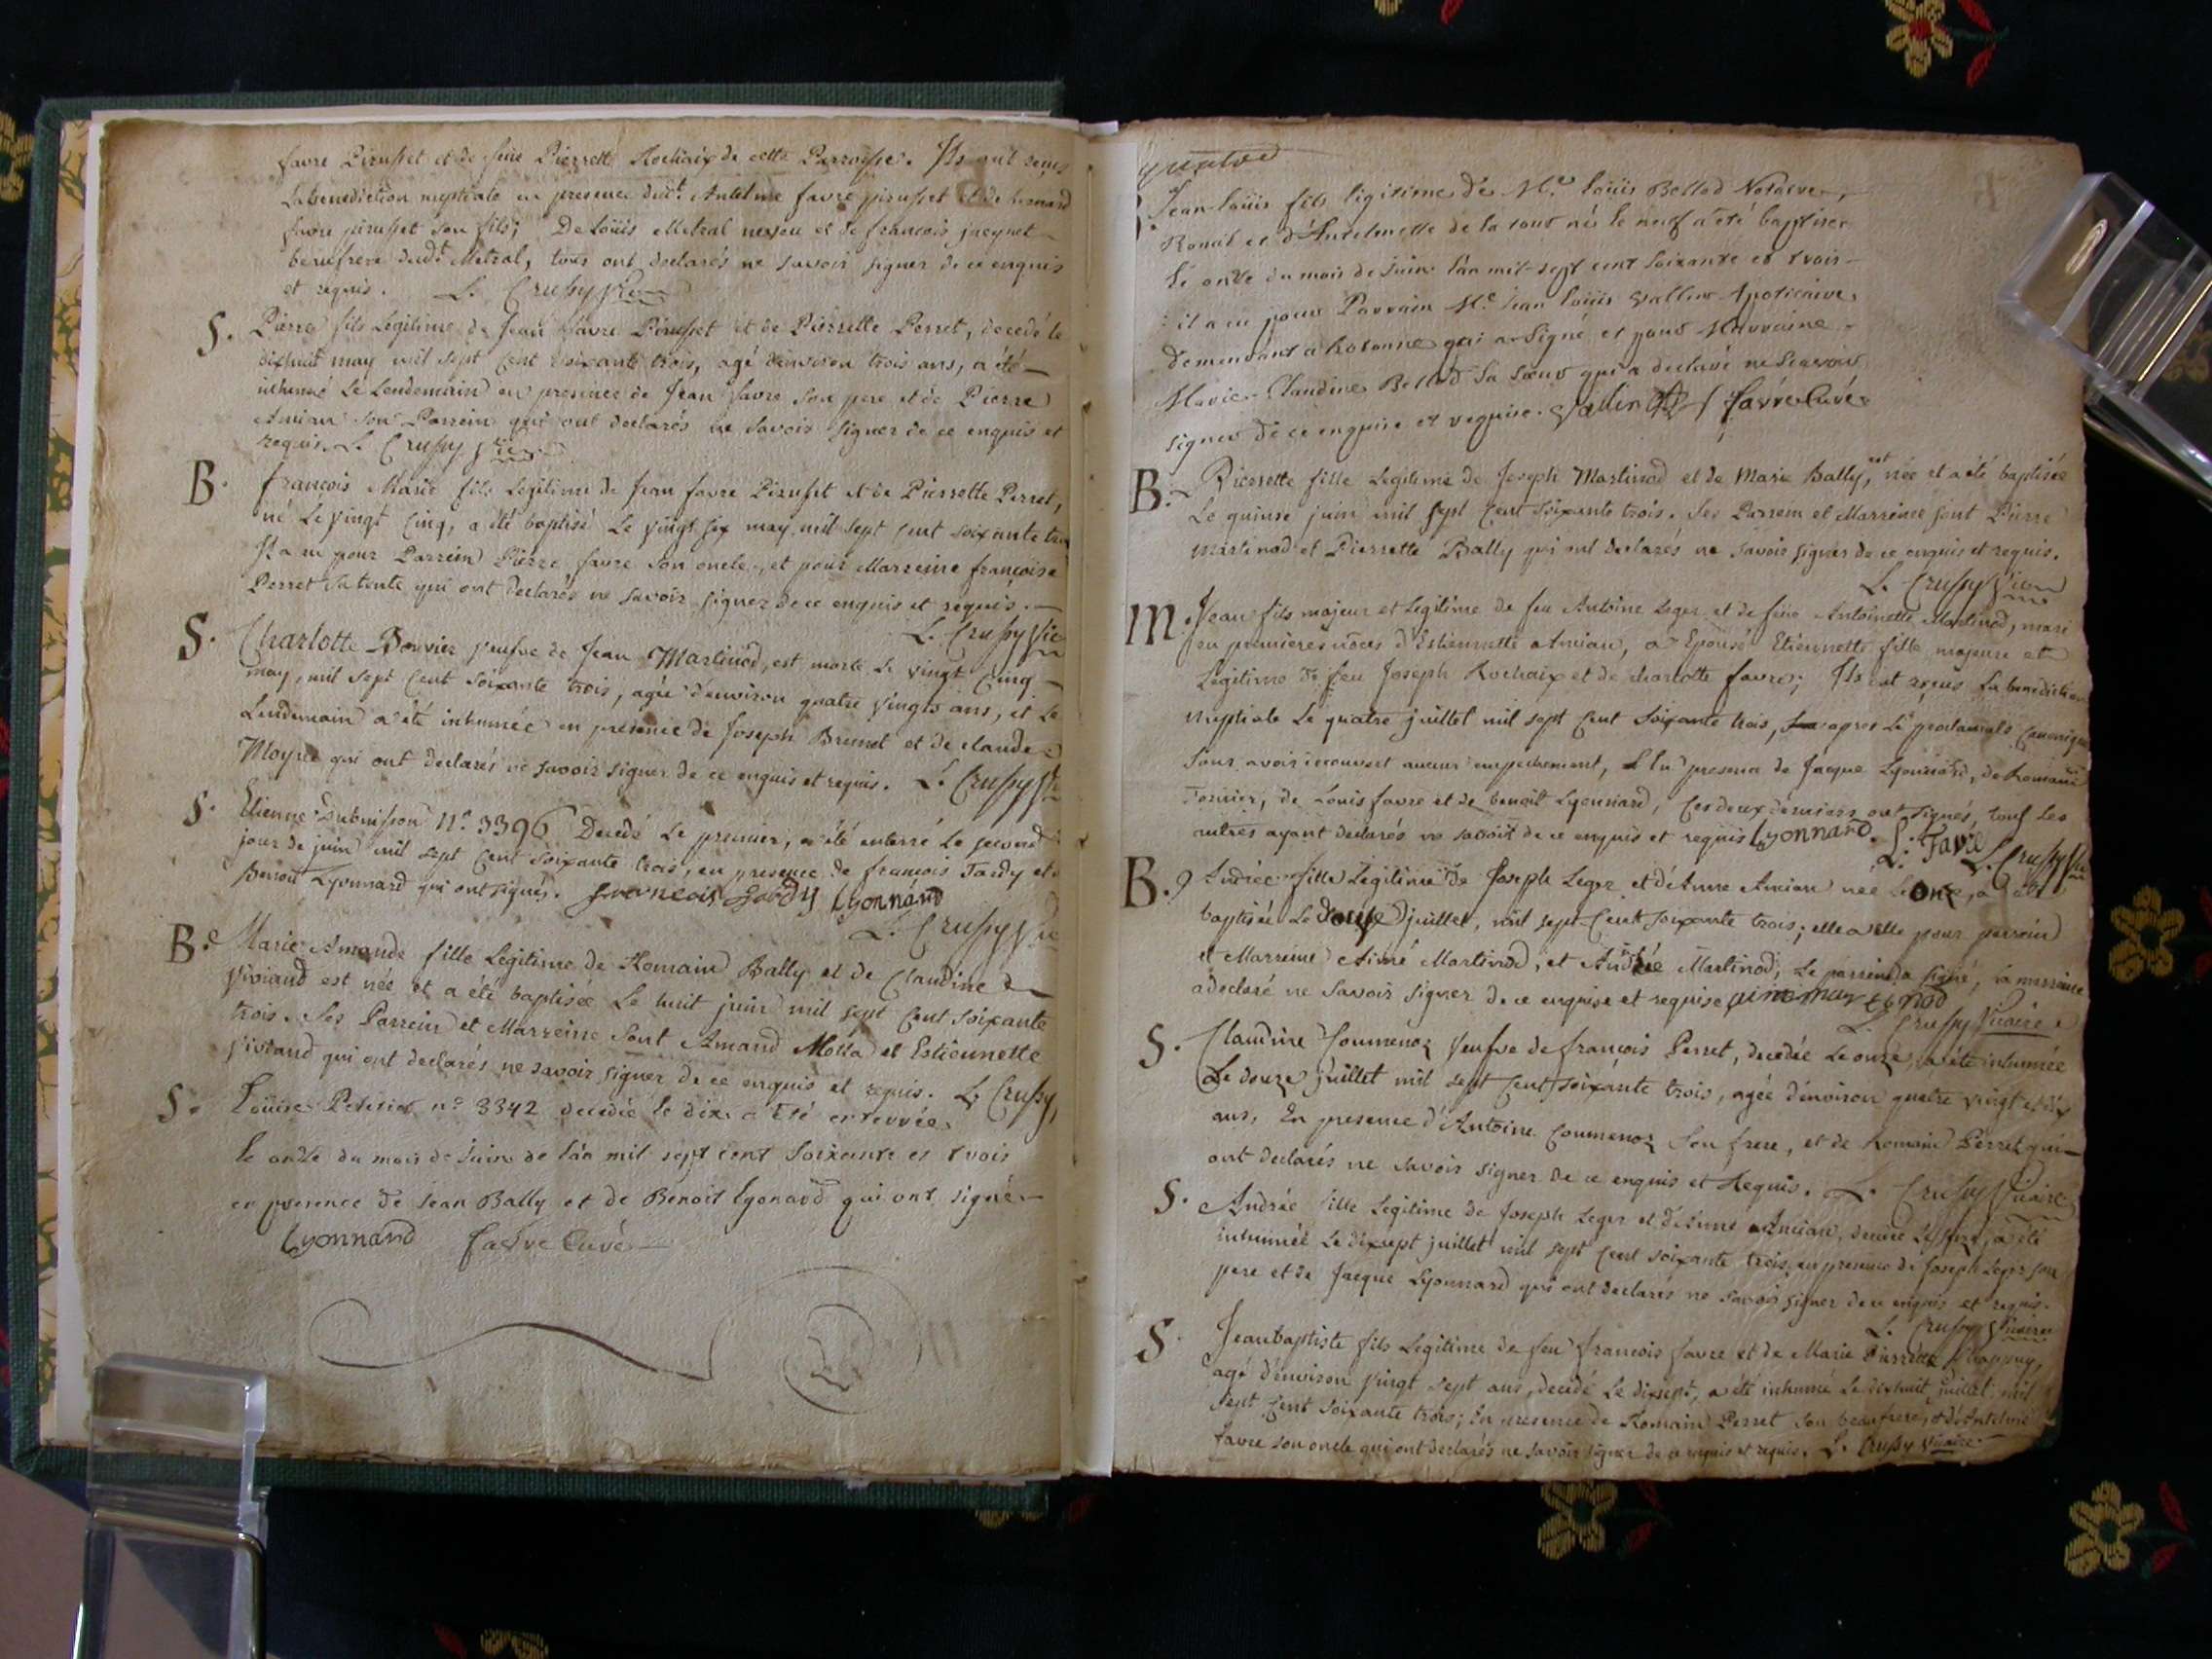 favre Pirusset et de feüe Pierrette Rochaix de cette Parroisse. Ils ont reçus
La benediction nuptiale en presence dudt. Antelme favre pirusset et de bernard
favre pirusset son fils; De Loüis Metral neveu et de francois jacquet
beaufrere dudt Metral, tous ont declarés ne savoir signer de ce enquis
et requis. L. Crussy Vic
S. Pierre fils Legitime de Jean favre Pirusset et de Pierrette Perret, decedé le
dixhuit may mil sept cent soixante trois, agé denviron trois ans, a été
inhumé Le Lendemain en presence de Jean favre son pere et de Pierre
Amian son Parrein qui ont declarés ne savoir signer de ce enquis et
requis. L. Crussy Vic
B. francois Marie fils Legitime de Jean favre Pirusset et de Pierrette Perret,
né Le vingt cinq, a été baptisé Le vingt six may mil sept cent soixante trois
Il a eu pour Parrein Pierre favre son oncle, et pour Marreine françoise
Perret sa tante qui ont declarés ne savoir signer de ce enquis et requis.
L. Crussy Vic
S. Charlotte Bouvier veufve de Jean Martinod, est morte Le vingt cinq
may, mil sept cent soixante trois, agée d'environ quatre vingts ans, et Le
Lendemain a été inhumée en présence de Joseph Brunet et de claude
Moyne qui ont declarés ne savoir signer de ce enquis et requis. L. Crussy Vic
S. Etienne Submission N°. 3396 Decedé Le premier, a été enterré Le second
jour de juin mil sept cent soixante trois, en presence de francois Tardy et
Benoit Lyonnard qui ont signés. francois tardy Lyonnard
L. Crussy Vic
B. Marie Amande fille Legitime de Romain Bally et de Claudine
Viviand est née et a été baptisée Le huit juin mil sept cent soixante
trois. Ses Parrein et Marreine sont Amand Motta et Estiennette
Viviand qui ont declarés ne savoir signer de ce enquis et requis. L. Crussy
S. Loüise n° 3342 decedée le dix a Eté enterrée
le onze du mois de Juin de l'an mil sept cent Soixante et trois
en presence de Jean Bally et de Benoit Lyonard qui ont signé
Lyonnard favre Curé
quatre
B. Jean-loüis fils ligitime de Me. loüis Bollod Notaire
Roial et d'Antelmette de la tour né le neuf a été baptisé
le onze du mois de Juin l'an mil-sept cent Soixante et trois
il a eu pour Parrain Me. Jean loüis Vallin Apoticaire
demeurant a qui a Signé et pour Marraine
Marie-Claudine Bollod Sa Sœur qui a declaré ne Scavoir
signer de ce enquise et requise. Vallin favre Curé
B. Pierrette fille Legitime de Joseph Martinod et de Marie Bally, est née et a été baptisée
Le quinze juin mil sept cent soixante trois. Ses Parrein et Marreine sont Pierre
Martinod et Pierrette Bally qui ont declarés ne savoir signer de ce enquis et requis.
L. Crussy Vic
M. Jean fils majeur et Legitime de feu Antoine Leger et de feüe Antoinette Martinod, mari
en premieres nôces d'Estiennette Amian, a Epousé Etiennette fille majeure et
Legitime de feu Joseph Rochaix et de charlotte favre; Ils ont reçus La benediction
nuptiale Le quatre juillet mil sept cent soixante trois, apres Les proclamats canoniques
sans avoir decouvert aucun empechement, En presence de Jacque Lyonnard, de Romain
Fornier, de Louis favre et de benoit Lyonnard, ces deux derniers ont signés, tous les
autres ayant declarés ne savoir de ce enquis et requis Lyonnard. L. Favre L. Crussy Vic
B. Andrée fille Legitime de Joseph Leger et d'Anne Amian née Le onze, a été
baptisée Le douze juillet, mil sept cent soixante trois; elle a eue pour parrein
et Marreine Aimé Martinod, et Andrée Martinod, Le parrein a signé, la marreine
a declaré ne savoir signer de ce enquise et requise aimé martinod
L. Crussy Vicaire
S. Claudine Coumenoz veufve de françois Perret, decedée Le onze, a été inhumée
Le douze juillet mil sept cent soixante trois, agée d'environ quatre vingt et dix
ans, En presence d'Antoine Coumenoz son frere, et de Romain Perret qui
ont declarés ne savoir signer de ce enquis et Requis. L. Crussy Vicaire
S. Andrée fille Legitime de Joseph Leger et d'Anne Amian, decedée Le seize, a été
inhumée Le dixsept juillet mil sept cent soixante trois, en presence de Joseph Leger son
pere et de Jacque Lyonnard qui ont declarés ne savoir signer de ce enquis et requis.
L. Crussy Vicaire
S. Jean baptiste fils Legitime de feu francois favre et de Marie Pierrette Chappuy,
agé d'environ vingt sept ans, decedé Le dixsept, a été inhumé Le dixhuit juillet mil
sept cent soixante trois; En presence de Romain Perret son beaufrere, et d'Antelme
favre son oncle qui ont declarés ne savoir signer de ce enquis et requis. L. Crussy Vicaire